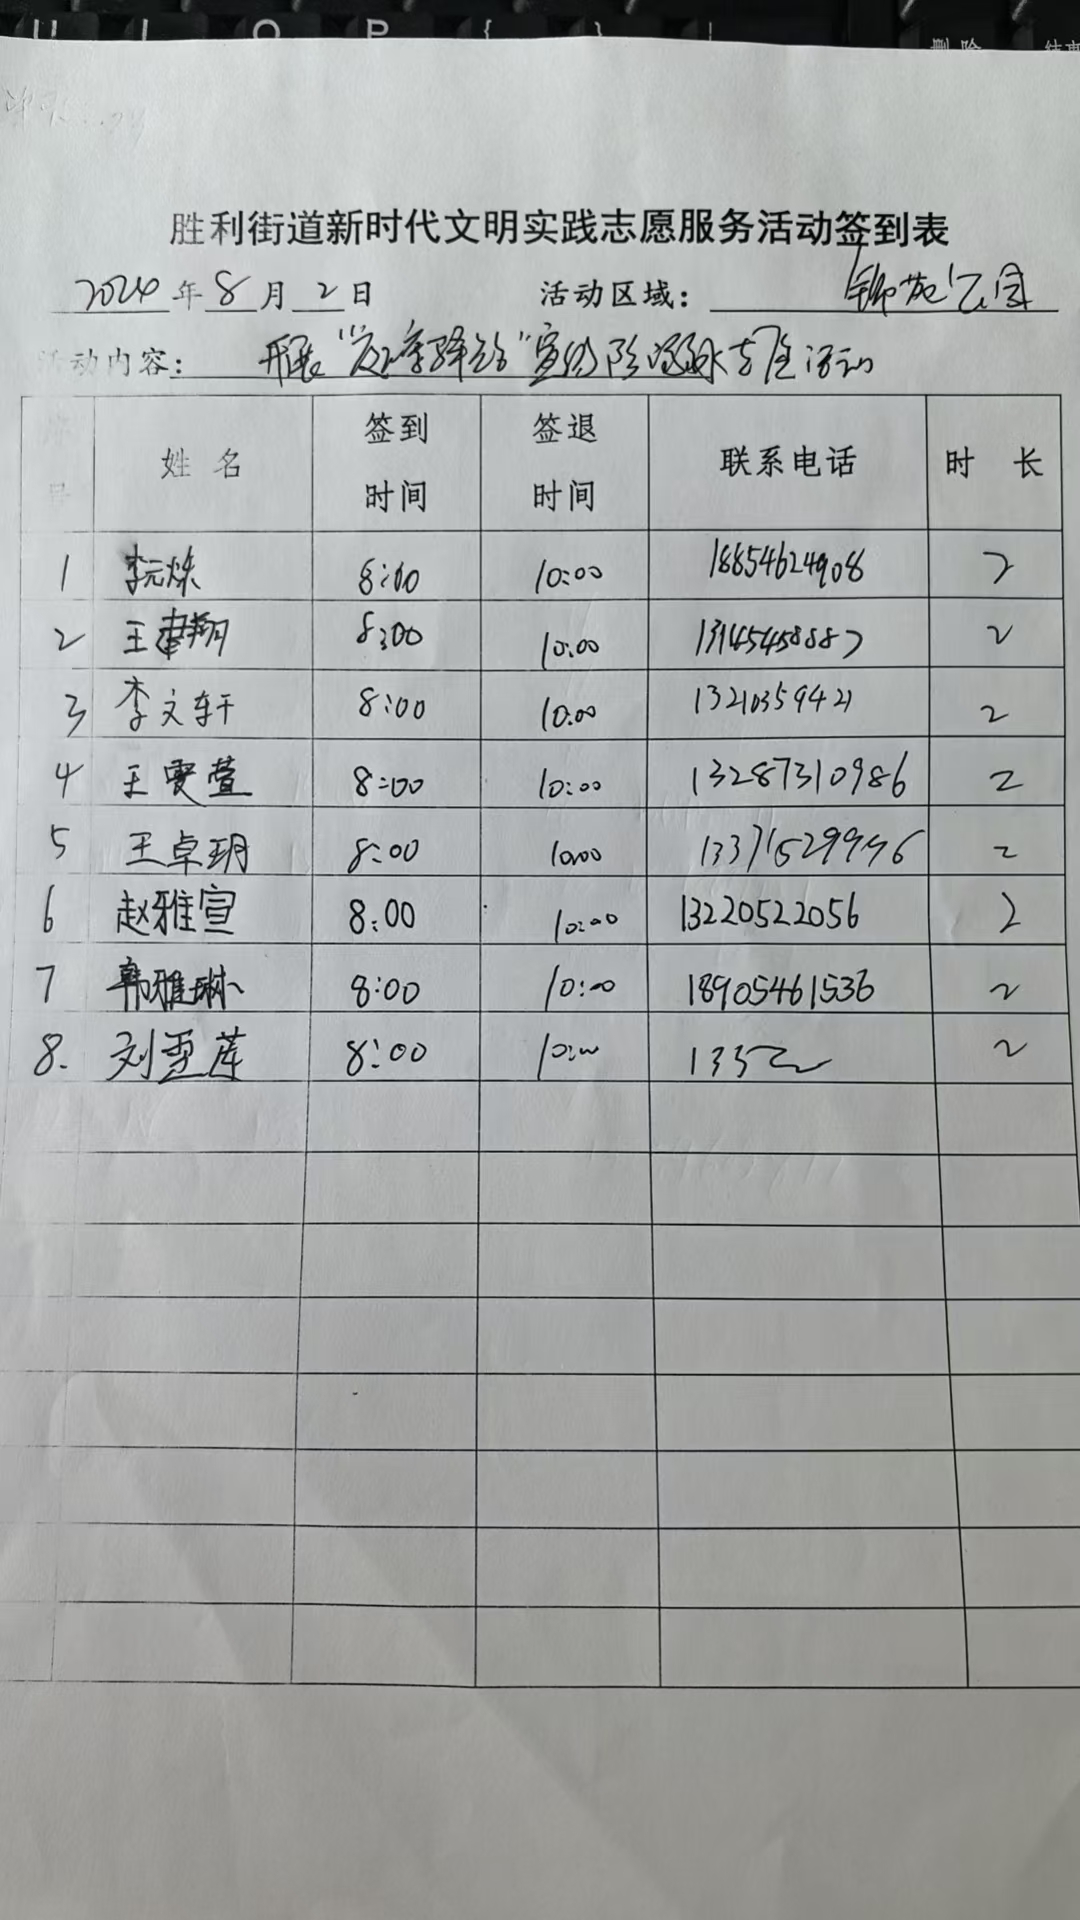 胜利街道新时代文明实践志愿服务活动签到表
2024年8月2日 活动区域：锦苑公园
活动内容：开展“ ”宣传防溺水志愿活动
序号 姓名 签到时间 签退时间 联系电话 时长
1 李元烁 8:00 10:00 18854624908 2
2 王建翔 8:00 10:00 13145458887 2
3 李文轩 8:00 10:00 13210359421 2
4 王雯萱 8:00 10:00 13287310986 2
5 王卓玥 8:00 10:00 2
6 赵雅宣 8:00 10:00 13220522056 2
7 韩雅琳 8:00 10:00 18905461536 2
8. 刘亚莲 8:00 10:00 135 2